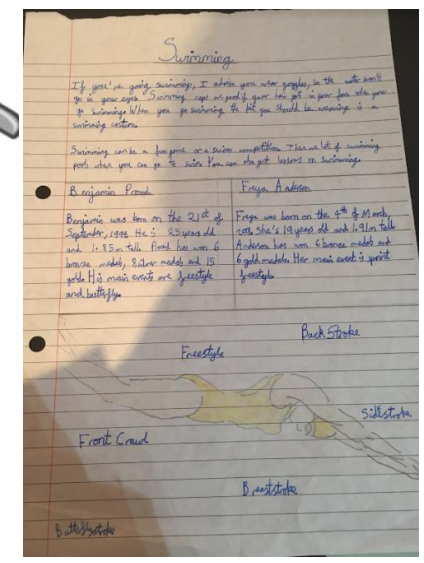 Swimming
If you're going swimming, I advise you wear goggles, so the water won't
go in your eyes. Swimming caps are good if your hair gets in your face when you
go swimming. When you go swimming the kit you should be wearing is a
swimming costume.
Swimming can be a fun game or a serious competition. There are lots of swimming
pools where you can go to swim. You can also get lessons on swimming.
Benjamin Proud
Benjamin was born on the 21st of
September, 1994. He is 25 years old
and 1.85m tall. Proud has won 6
bronze medals, 8 silver medals and 15
golds. His main events are freestyle
and butterfly.
Freya Anderson
Freya was born on the 4th of March,
2001. She's 19 years old and 1.91m tall.
Anderson has won 6 bronze medals and
6 gold medals. Her main event is sprint
freestyle.
Back Stroke
Freestyle
Sidestroke
Front Crawl
Breaststroke